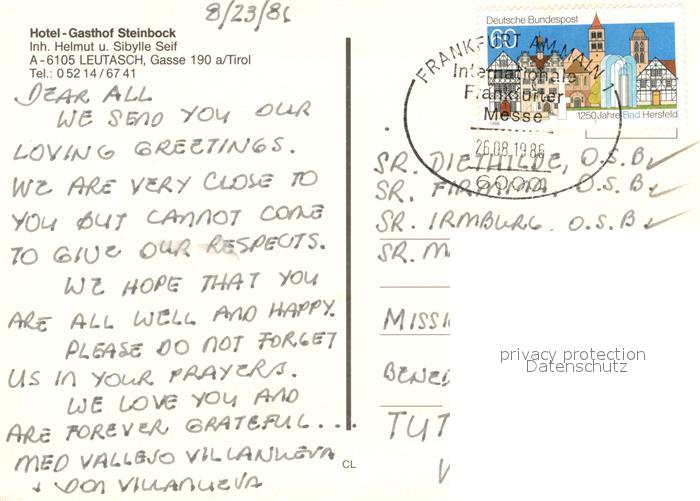 8/23/86
Hotel-Gasthof Steinbock
Inh. Helmut u. Sibylle Seif
A-6105 LEUTASCH, Gasse 190 a/Tirol
Tel.: 0 52 14 / 67 41
DEAR ALL
WE SEND YOU OUR
LOVING GREETINGS.
WE ARE VERY CLOSE TO
YOU BUT CANNOT COME
TO GIVE OUR RESPECTS.
WE HOPE THAT YOU
ARE ALL WELL AND HAPPY.
PLEASE DO NOT FORGET
US IN YOUR PRAYERS.
WE LOVE YOU AND
ARE FOREVER GRATEFUL...
MED VALLEJO VILLANUEVA
+ DON VILLANUEVA
CL
Deutsche Bundespost
60
1250 Jahre Bad Hersfeld
FRANKFURT AM MAIN 1
Internationale
Frankfurter
Messe
26.08.1986
6000
SR. DIETHILDE, O.S.B.
SR. O.S.B.
SR. IRMBURG, O.S.B.
SR. M
MISSI
BENED
TUT
privacy protection
Datenschutz